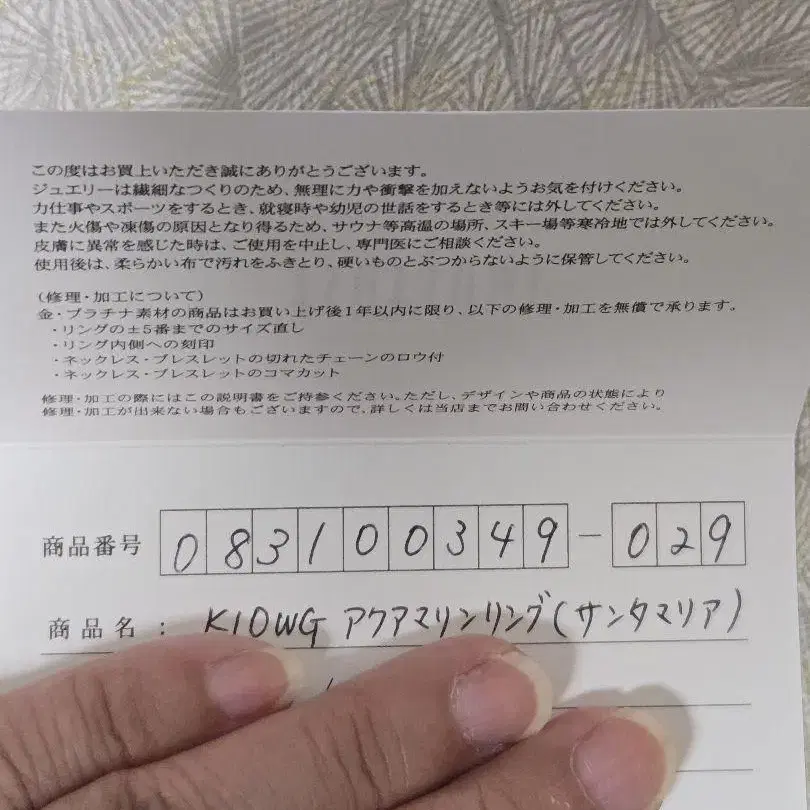 この度はお買上いただき誠にありがとうございます。
ジュエリーは繊細なつくりのため、無理に力や衝撃を加えないようお気を付けください。
力仕事やスポーツをするとき、就寝時や幼児の世話をするとき等には外してください。
また火傷や凍傷の原因となり得るため、サウナ等高温の場所、スキー場等寒冷地では外してください。
皮膚に異常を感じた時は、ご使用を中止し、専門医にご相談ください。
使用後は、柔らかい布で汚れをふきとり、硬いものとぶつからないように保管してください。
（修理・加工について）
金・プラチナ素材の商品はお買い上げ後1年以内に限り、以下の修理・加工を無償で承ります。
・リングの±5番までのサイズ直し
・リング内側への刻印
・ネックレス・ブレスレットの切れたチェーンのロウ付
・ネックレス・ブレスレットのコマカット
修理・加工の際にはこの説明書をご持参ください。ただし、デザインや商品の状態により
修理・加工が出来ない場合もございますので、詳しくは当店までお問い合わせください。
商品番号 083100349-029
商品名： K10WG アクアマリンリング(サンタマリア)